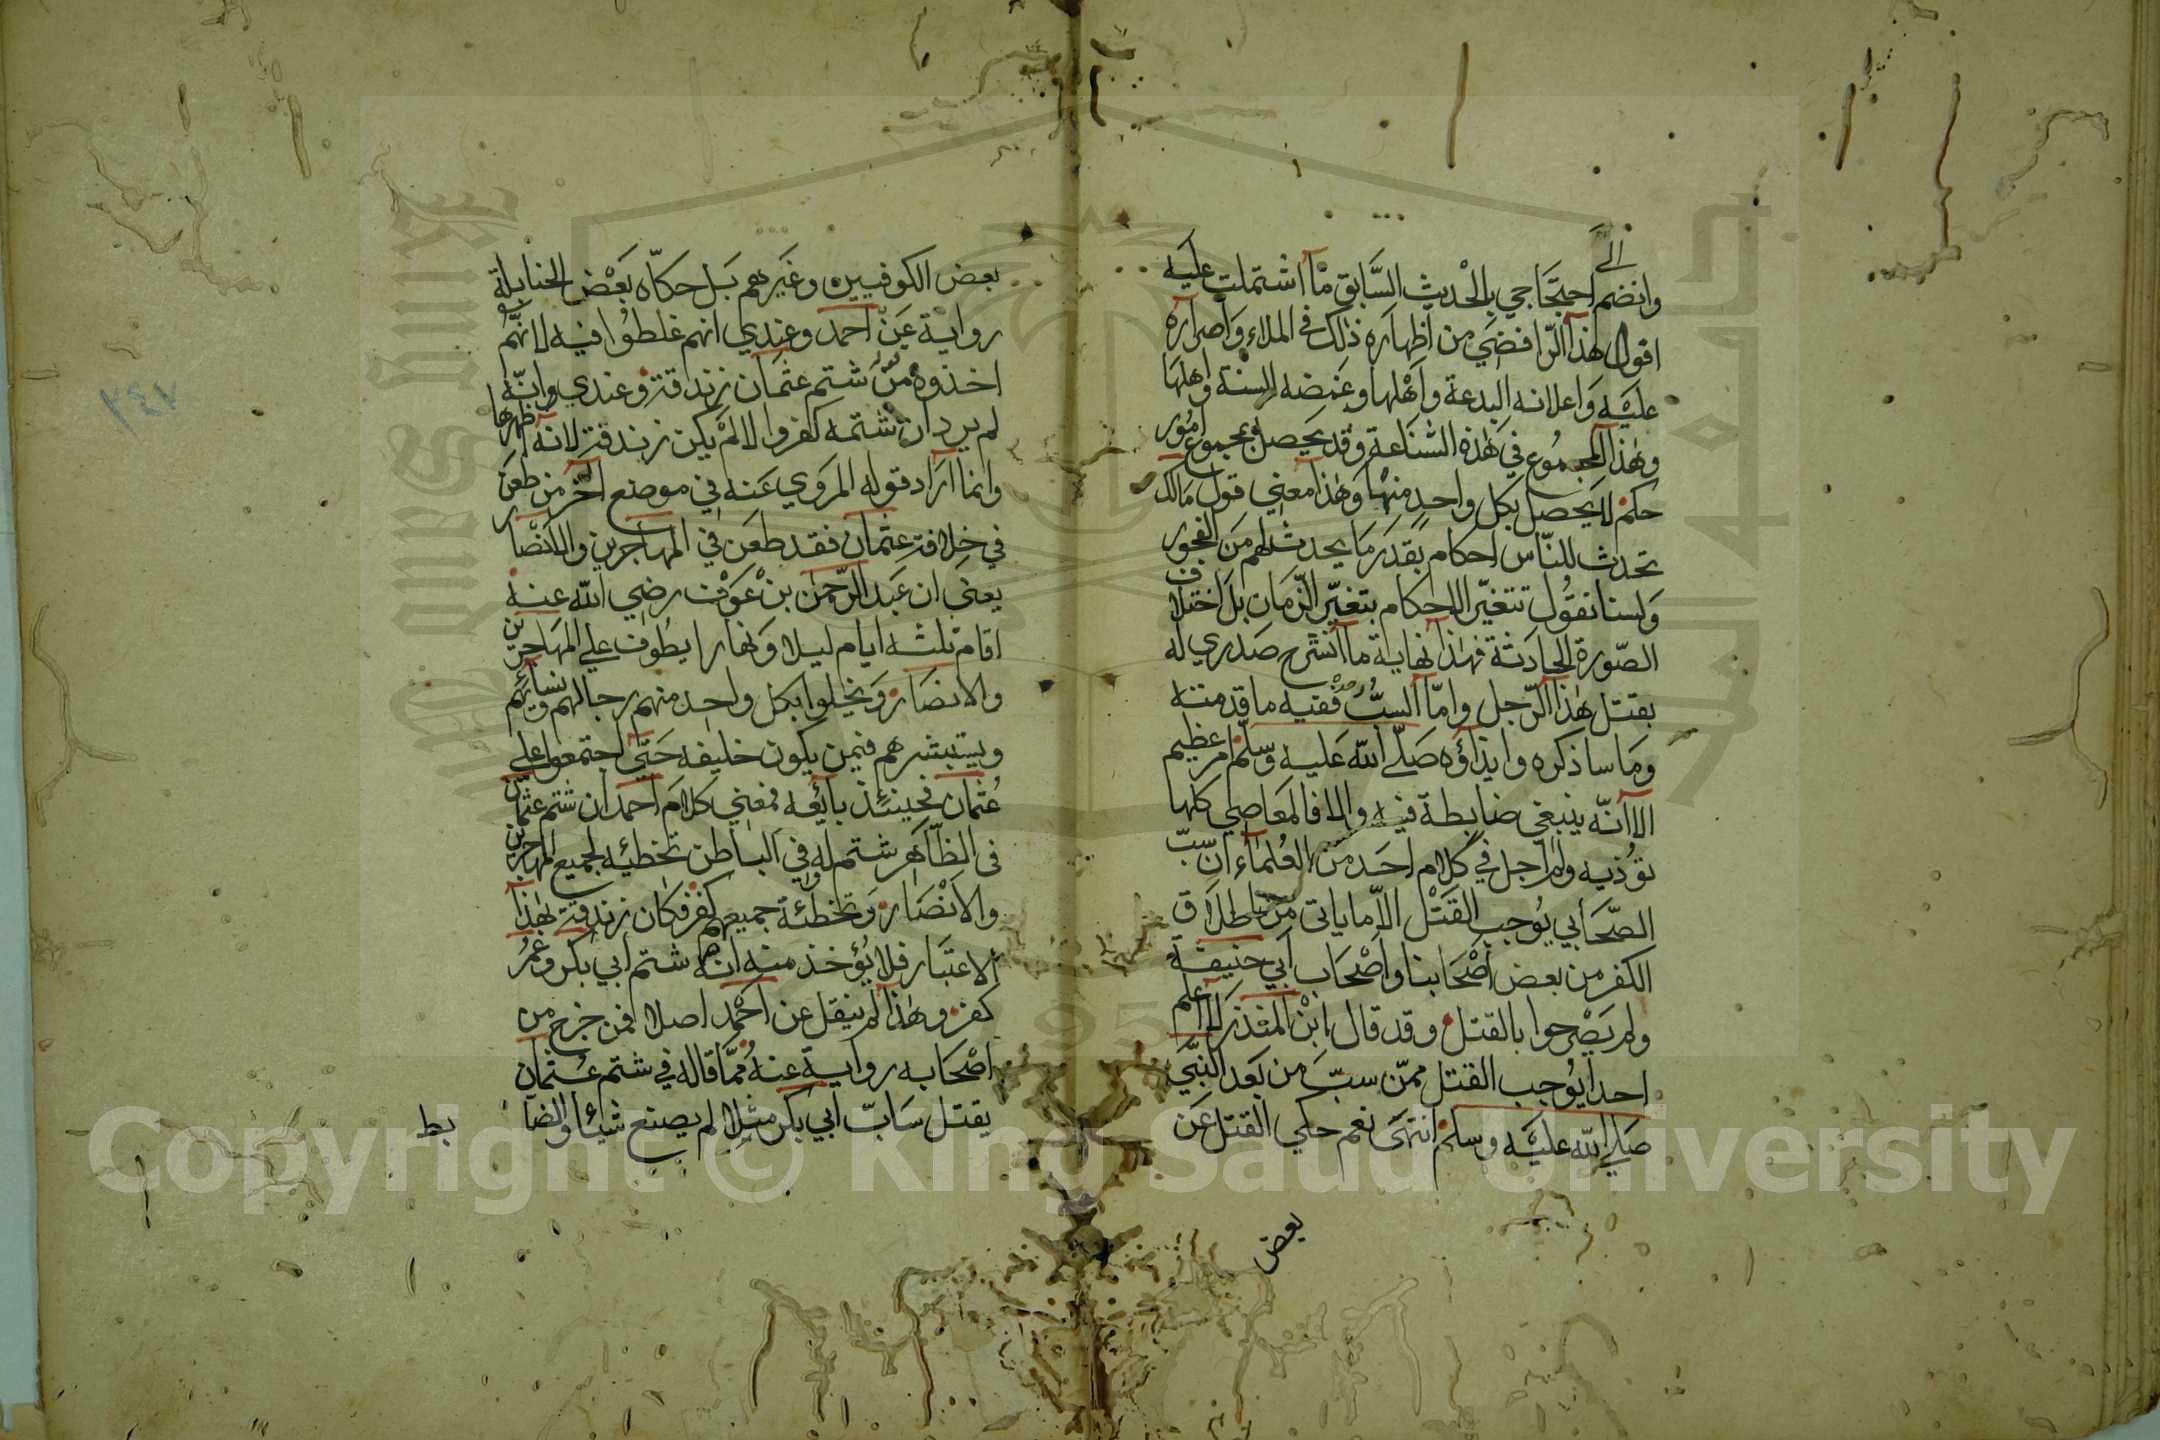 وانضم الى احتجاجي بالحديث السابق ما اشتملت عليه
اقوال هذا الرافضي من اظهاره ذلك في الملاء واصراره
عليه واعلانه البدعة واهلها وغمضه السنة واهلها
وهذا المجموع في هذه الشناعة وقد يحصل بمجموع امور
حكم لا يحصل بكل واحد منها وهذا معني قول مالك
تحدث للناس احكام بقدر ما يحدث لهم من الفجور
ولسنا نقول تتغير الاحكام بتغير الزمان بل اختلاف
الصورة الحادثة فهذا نهاية ما انشرح صدري له
بقتل هذا الرجل واما السب ففيه ما قدمته
وما ساذكره وايذاؤه صلى الله عليه وسلم امر عظيم
الا انه ينبغي ضابطة فيه والا فالمعاصي كلها
تؤذيه ولم اجل في كلام احد من العلماء ان سب
الصحابي يوجب القتل الا ما ياتى من اطلاق
الكفر من بعض اصحابنا واصحاب ابي حنيفة
ولم يصرحوا بالقتل وقد قال ابن المنذر لا اعلم
احدا يوجب القتل ممن سب من بعد النبي
صلي الله عليه وسلم انتهى نعم حكي القتل عن
بعض
بعض الكوفيين وغيرهم بل حكاه بعض الحنابلة
رواية عن احمد وعندي انهم غلطوا فيه لانهم
اخذوه من شتم عثمان زندقة وعندي وانه
لم يرد ان شتمه كفر والا لم يكن زندقة لانه اظهرها
وانما اراد قوله المروي عنه في موضع اخر من طعن
في خلافة عثمان فقد طعن في المهاجرين والانصار
يعني ان عبد الرحمن بن عوف رضي الله عنه
اقام ثلثه ايام ليلا ونهارا يطوف علي المهاجرين
والانصار ويخلوا بكل واحد منهم رجالهم ونسائهم
ويستشرهم فيمن يكون خليفه حتي اجتمعوا علي
عثمان فحينئذ بائعه فمعني كلام احمد ان شتم عثمان
في الظاهر شتم له وفي الباطن تخطئه لجميع المهاجرين
والانصار وتخطئة جميعهم كفر فكان زندقة بهذا
الاعتبار فلا يؤخذ منه ان شتم ابي بكر وعمر
كفر وهذا لم ينقل عن احمد اصلا فمن خرج من
اصحابه رواية عنه مما قاله في شتم عثمان
يقتل ساب ابي بكر مثلا لم يصنع شيئا والضا
بط
٢٤٧
Copyright © King Saud University